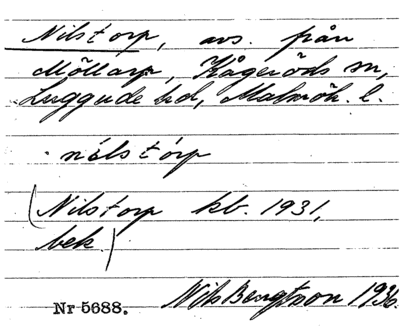 Nilstorp, avs. från
Möllarp, Kågeröds sn,
Luggude hd, Malmöh. l.
nilstorp
(Nilstorp kb. 1931,
bek.)
Nr 5688. Nils Bengtsson 1936.